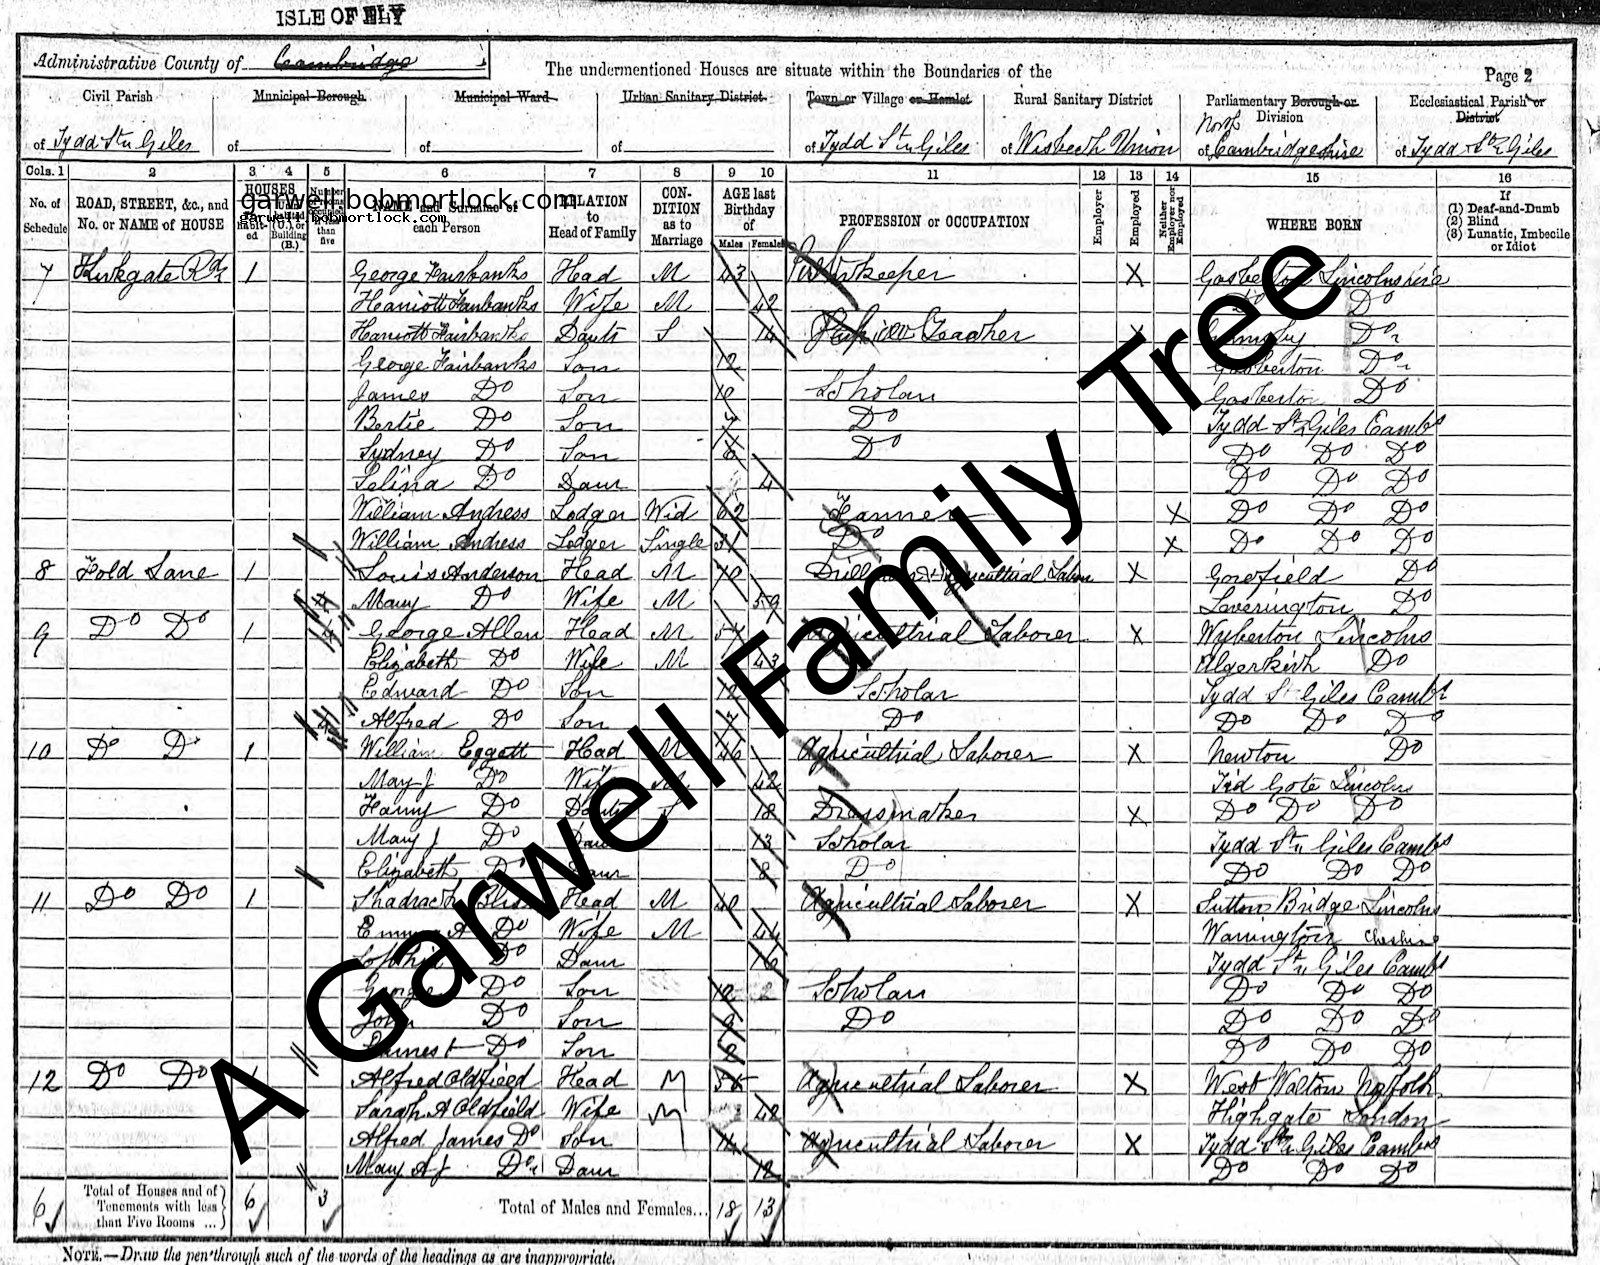 ISLE OF ELY
Administrative County of Cambridge
The undermentioned Houses are situate within the Boundaries of the
Page 2
Civil Parish Municipal Borough Municipal Ward Urban Sanitary District Town or Village or Hamlet Rural Sanitary District Parliamentary Borough or Division Ecclesiastical Parish or District
of Tydd St Giles of of of of Tydd St Giles of Wisbech Union of North Cambridgeshire of Tydd St Giles
Cols. 1 2 3 4 5 6 7 8 9 10 11 12 13 14 15 16
No. of Schedule ROAD, STREET, &c., and No. or NAME of HOUSE HOUSES NAME and Surname of each Person RELATION to Head of Family CONDITION as to Marriage AGE last Birthday of Males Females PROFESSION or OCCUPATION Employer Employed Neither Employer nor Employed WHERE BORN If (1) Deaf-and-Dumb (2) Blind (3) Lunatic, Imbecile or Idiot
garwell.bobmortlock.com
garwell.bobmortlock.com
7 Kirkgate Rd 1 George Fairbanks Head M 43 X Gosberton Lincolnshire
Harriott Fairbanks Wife M 42 Do Do
Harriott Fairbanks Daur S 14 Teacher X Do
George Fairbanks Son 12 Gosberton Do
James Do Son 10 Scholar Gosberton Do
Bertie Do Son 7 Do Tydd St Giles Cambs
Sydney Do Son 6 Do Do Do Do
Selina Do Daur 4 Do Do Do
William Andress Lodger Wid 62 Farmer X Do Do Do
William Andress Lodger Single 31 Do X Do Do Do
8 Fold Lane 1 Louis Anderson Head M 70 Agricultrial Labour X Gorefield Do
Mary Do Wife M 59 Leverington Do
9 Do Do 1 George Allen Head M 57 Agricultrial Laborer X Wyberton Lincolns
Elizabeth Do Wife M 43 Algerkirk Do
Edward Do Son 12 Scholar Tydd St Giles Cambs
Alfred Do Son 7 Do Do Do Do
10 Do Do 1 William Eggett Head M 46 Agricultrial Laborer X Newton Do
Mary J Do Wife M 42 Tid Gote Lincolns
Fanny Do Daur S 18 Dressmaker X Do Do Do
Mary J Do Daur 13 Scholar Tydd St Giles Cambs
Elizabeth Do Daur 8 Do Do Do Do
11 Do Do 1 Shadrach Head M 40 Agricultrial Laborer X Sutton Bridge Lincolns
Emma A Do Wife M 44 Warrington Cheshire
Sophia Do Daur 16 Tydd St Giles Cambs
George Do Son 12 Scholar Do Do Do
John Do Son 9 Do Do Do Do
Earnest Do Son Do Do Do
12 Do Do 1 Alfred Oldfield Head M Agricultrial Laborer X West Walton Norfolk
Sarah A Oldfield Wife M 42 Highgate London
Alfred James Do Son 14 Agricultrial Laborer X Tydd St Giles Cambs
Mary A J Do Daur 12 Do Do Do
6 Total of Houses and of Tenements with less than Five Rooms ... 6 3 Total of Males and Females... 18 13
NOTE.—Draw the pen through such of the words of the headings as are inappropriate.
A Garwell Family Tree